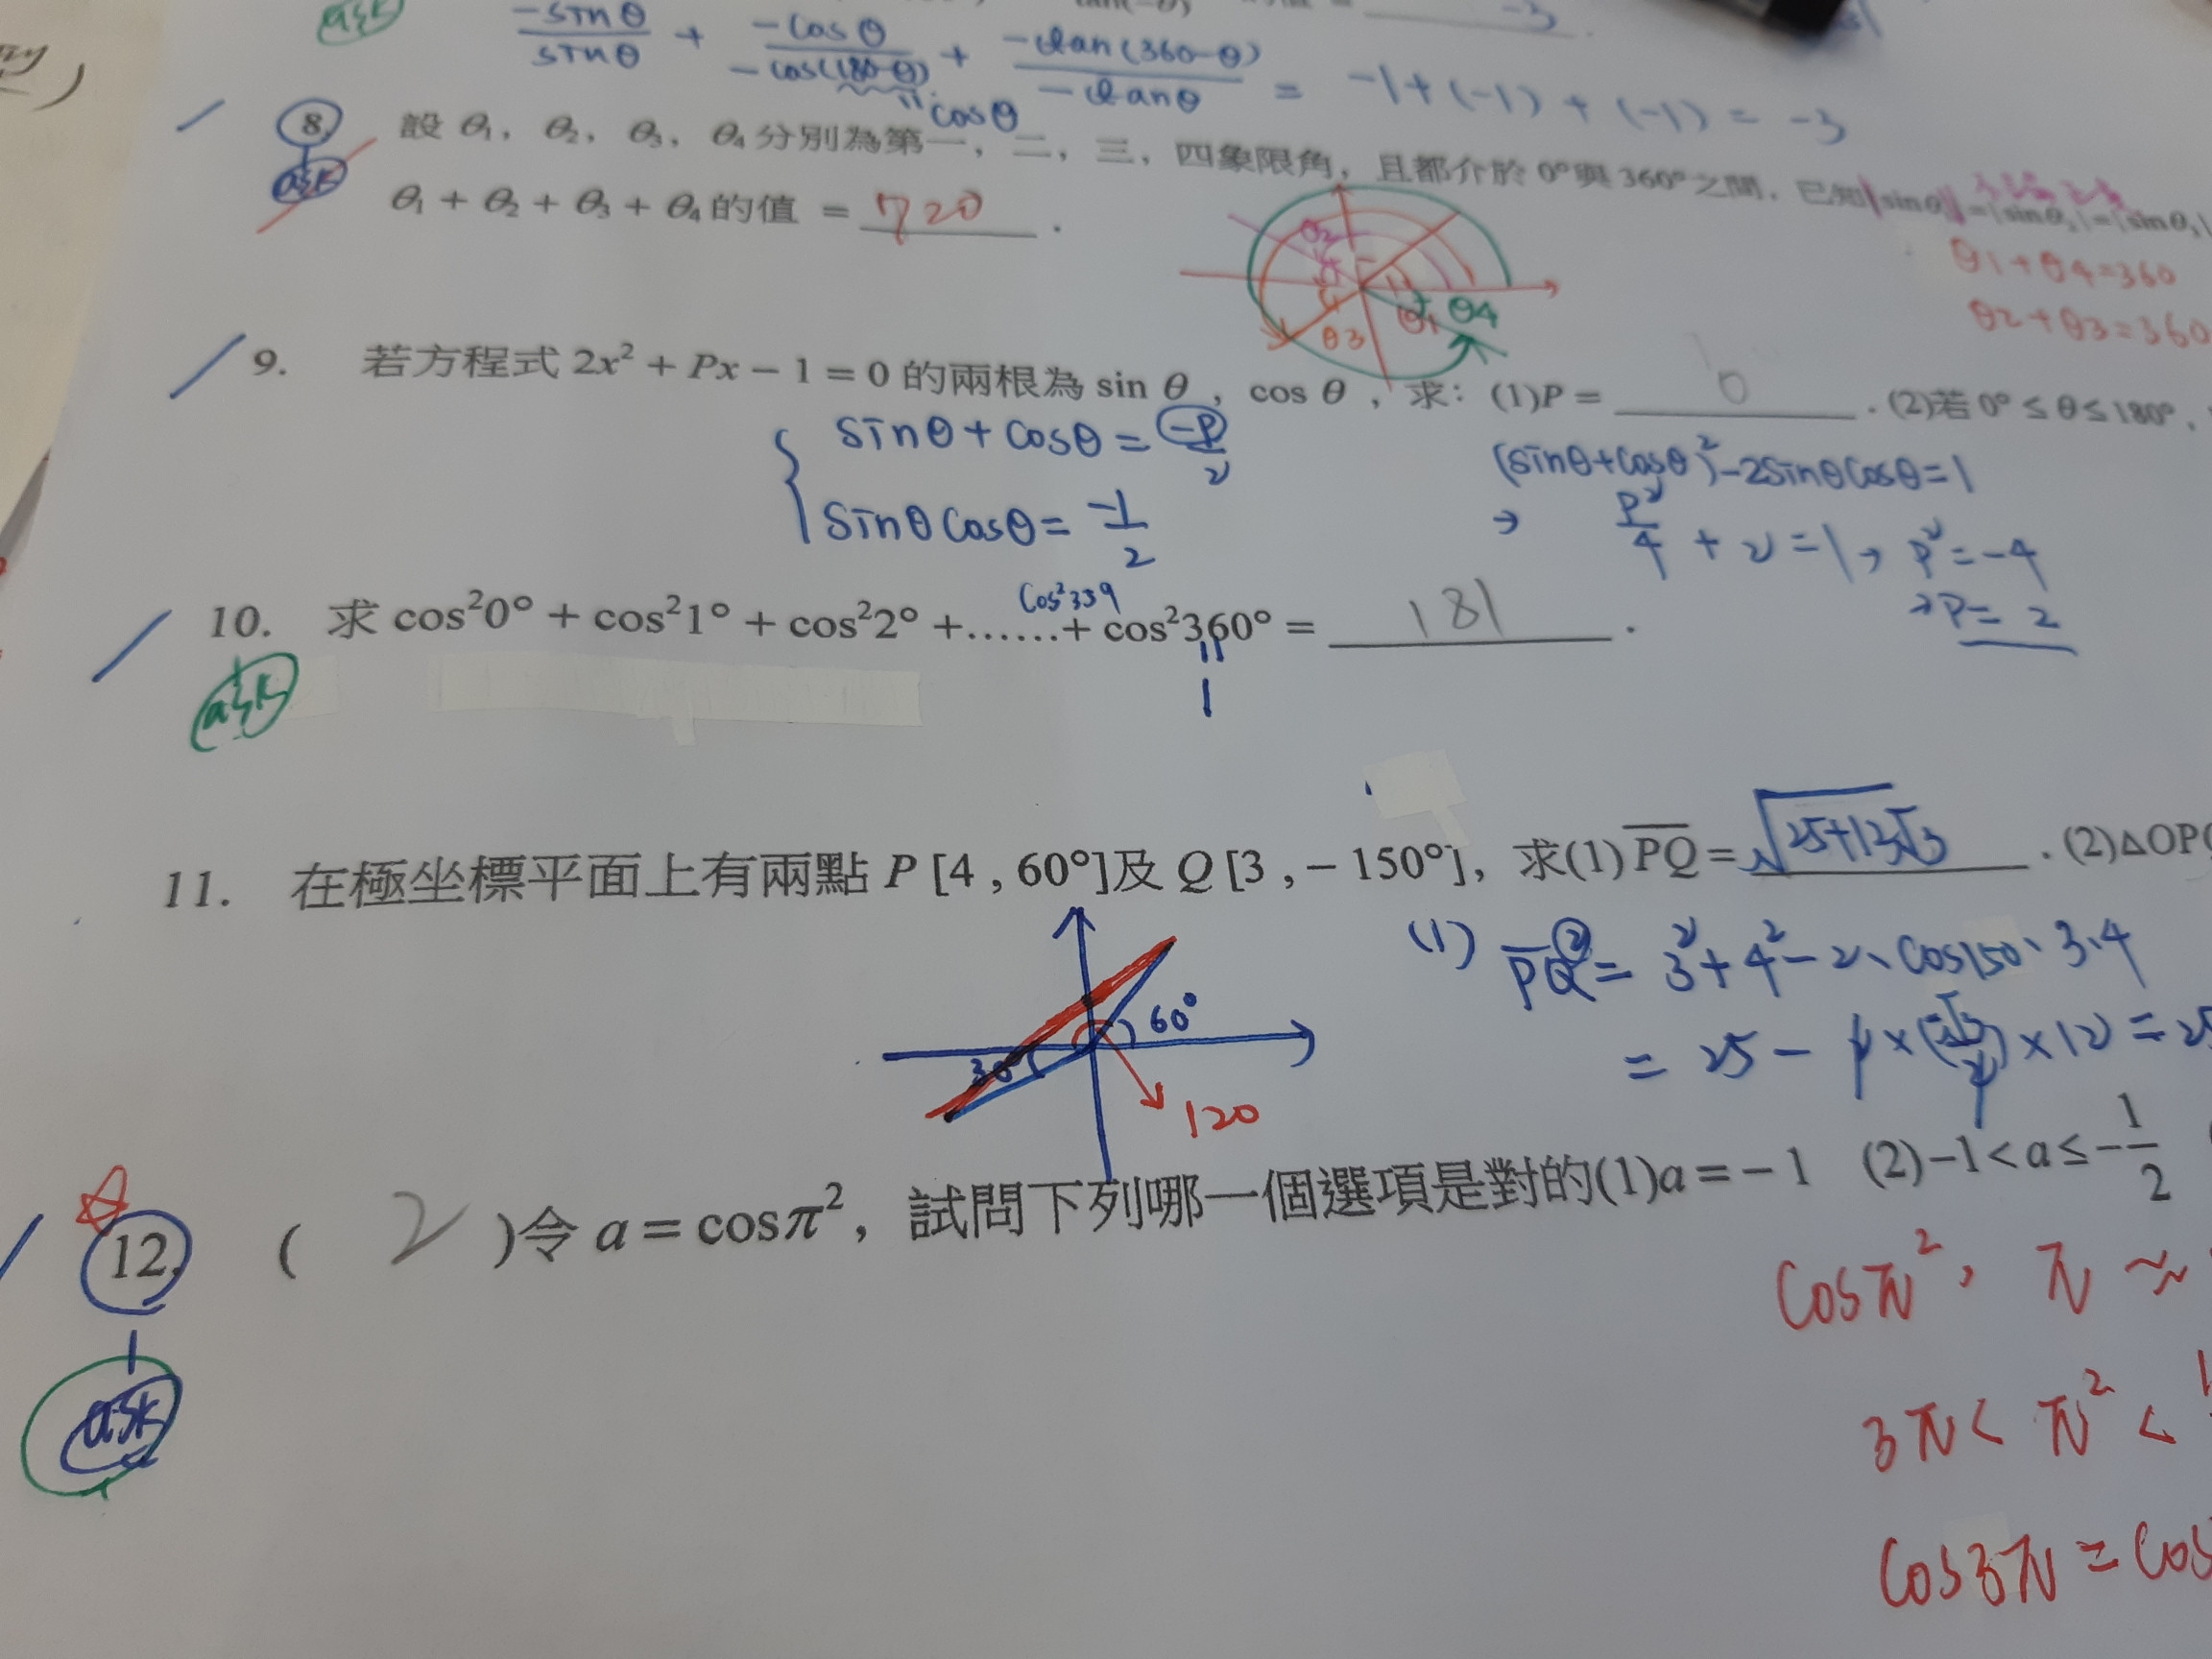 ask
-sinθ/sinθ + -cosθ/-cos(180-θ) + -tan(360-θ)/-tanθ = -1+(-1)+(-1) = -3
-3
cosθ
8. 設 θ₁, θ₂, θ₃, θ₄ 分別為第一, 二, 三, 四象限角, 且都介於 0° 與 360° 之間, 已知 |sinθ₁|=|sinθ₂|=|sinθ₃|
ask
θ₁ + θ₂ + θ₃ + θ₄ 的值 = 720 .
θ1+θ4=360
θ2+θ3=360
θ2
θ3
θ1
θ4
9. 若方程式 2x² + Px − 1 = 0 的兩根為 sin θ , cos θ , 求: (1)P = 0 . (2)若 0° ≤ θ ≤ 180° ,
sinθ + cosθ = -P/2
sinθcosθ = -1/2
(sinθ+cosθ)²-2sinθcosθ=1
→ P²/4 + 2 = 1 → P² = -4
→P= 2
cos²359
10. 求 cos²0° + cos²1° + cos²2° +……+ cos²360° = 181 .
ask
1
11. 在極坐標平面上有兩點 P [4 , 60°]及 Q [3 , − 150°], 求(1) PQ = √25+12√3 . (2)△OPQ
60°
30
120
(1) PQ² = 3²+4²-2·cos150·3·4
= 25 - 2×(-√3/2)×12 = 25
12. ( 2 )令 a = cosπ², 試問下列哪一個選項是對的(1)a = − 1 (2)−1 < a ≤ −1/2
ask
cosπ², π ≈
3π < π² <
cos3π = cos